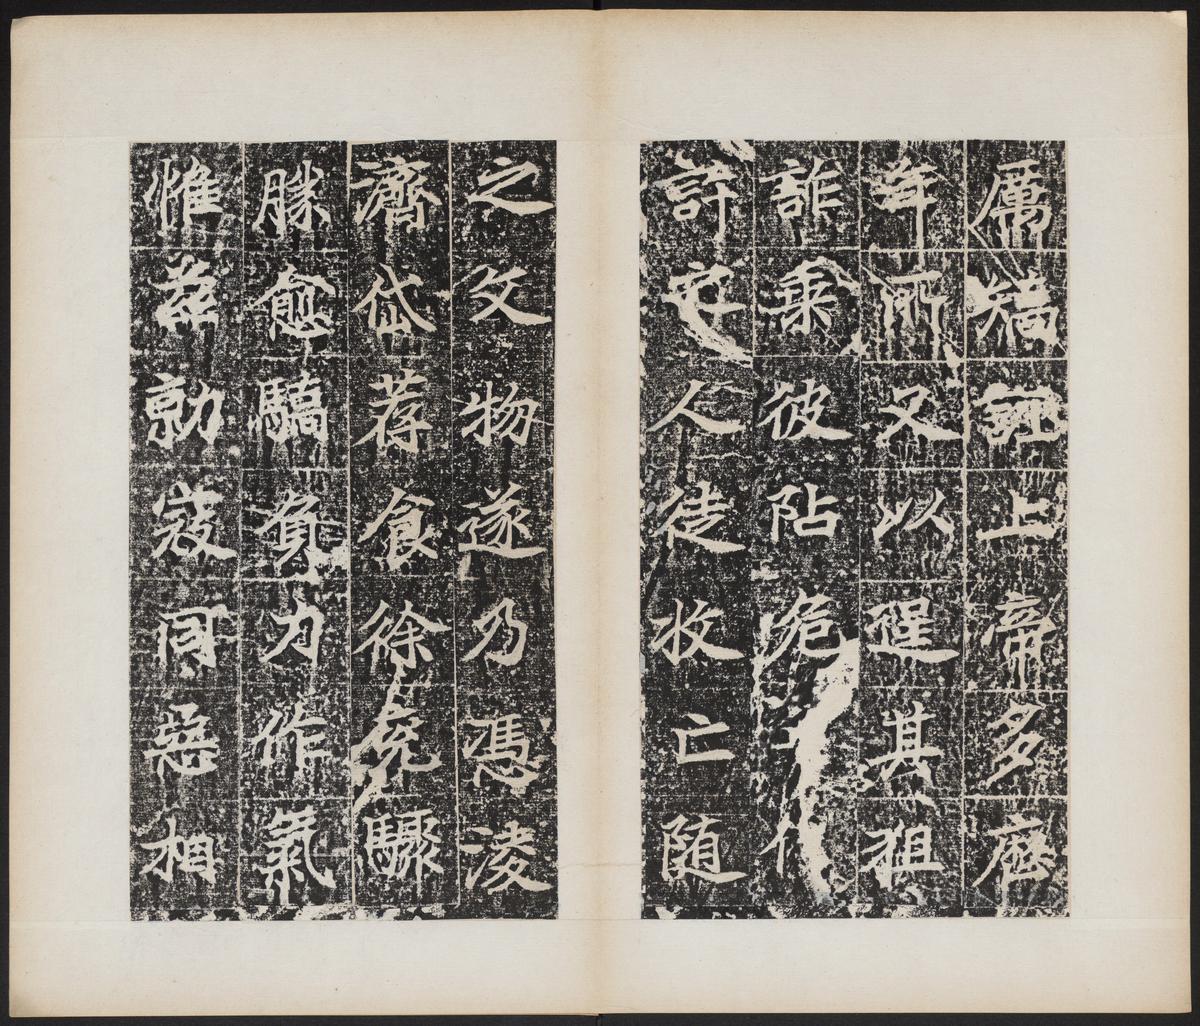 厲矯誣上帝多歷
年所又以逞其狙
詐乘彼阽危化
許之人徒收亡隨
之文物遂乃憑淩
濟岱荐食徐兖驟
勝愈驕負力作氣
惟兹勍寇同惡相